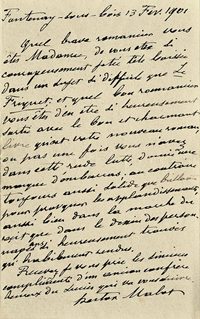 Fontenay-sous-bois 13 Fév. 1901
Quel brave romancier vous
êtes Madame, de vous être si
courageusement jetée
dans un sujet si difficile que Le
Friquet, et quel bon romancier
vous êtes d'en être si heureusement
sortie avec le bon et charmant
livre qu'est votre nouveau roman,
ou pas une fois vous n'avez
dans cette rude lutte, donné une
marque d'embarras, au contraire
toujours aussi solide que brillante
pour provoquer les applaudissements
aussi bien dans la du
sujet que dans le dessin des person-
nages si heureusement trouvés
qu' rendus.
Recevez je vous prie les sincères
compliments d'un ancien confrère
heureux du succès qui va vous suivre
Hector Malot